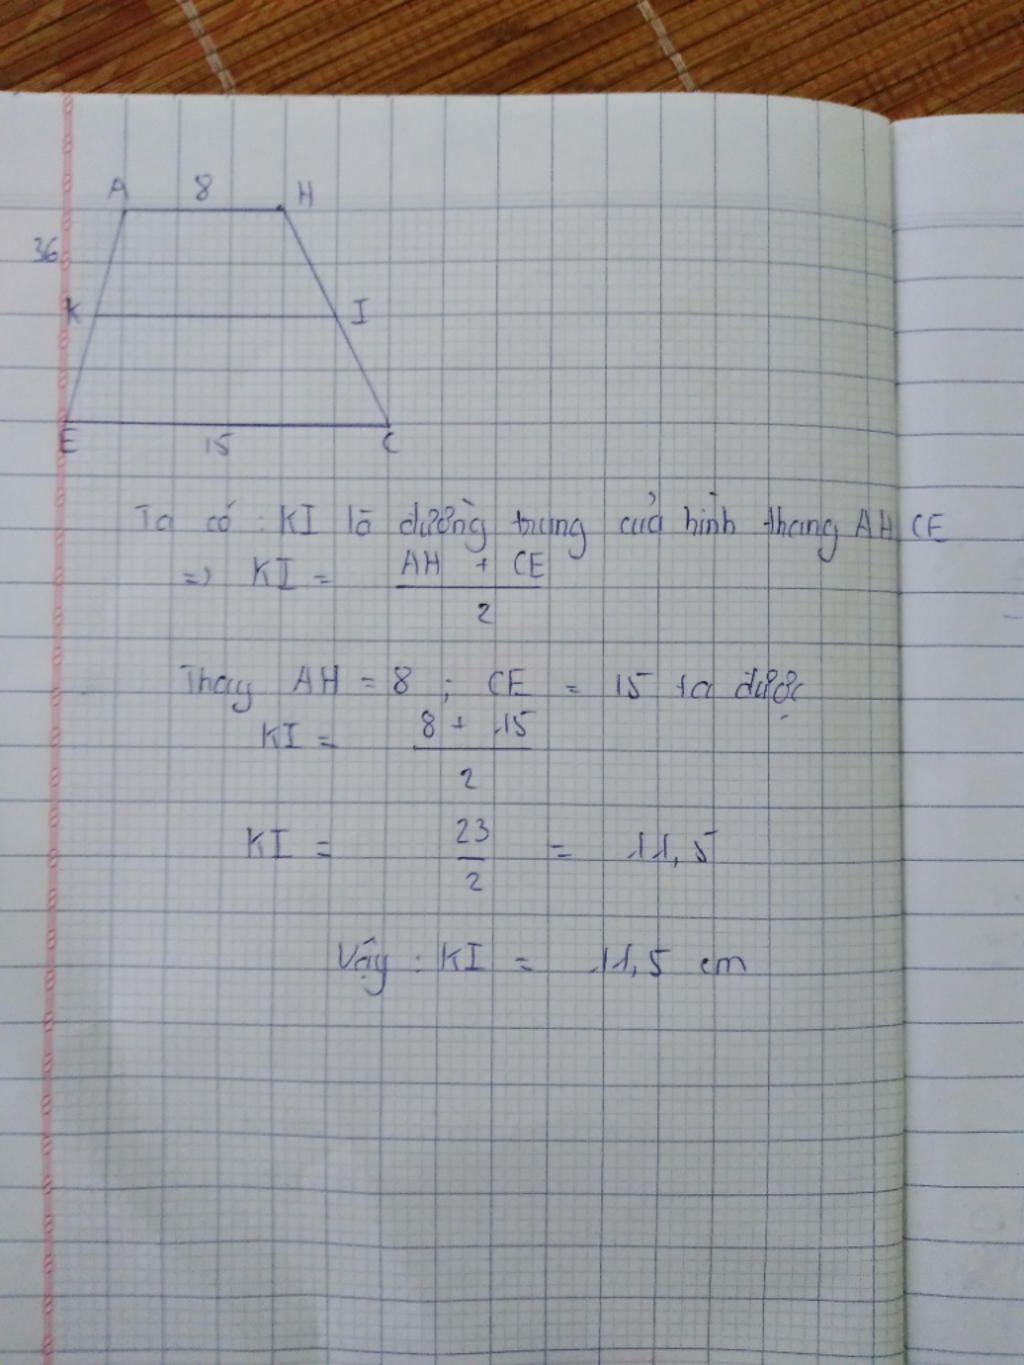 A 8 H
36
K I
E 15 C
Ta có : KI là đường trung của hình thang AHCE
=> KI = AH + CE
2
Thay AH = 8 ; CE = 15 ta được
KI = 8 + 15
2
KI = 23 = 11,5
2
Vậy : KI = 11,5 cm